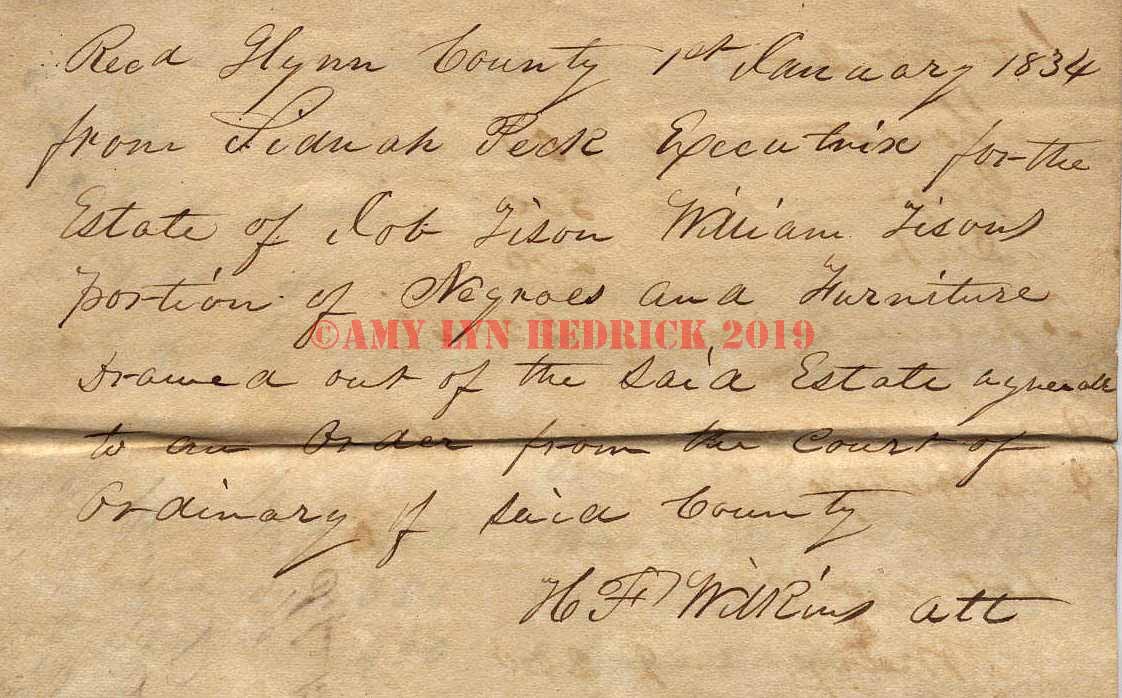 Recd Glynn County 1st January 1834
from Sidnah Peck Executrix for the
Estate of Job Tison William Tisons
portion of Negroes and Furniture
©AMY LYN HEDRICK 2019
Drawed out of the Said Estate agreeabl
to an Order from the Court of
Ordinary of Said County
H F Wilkins att